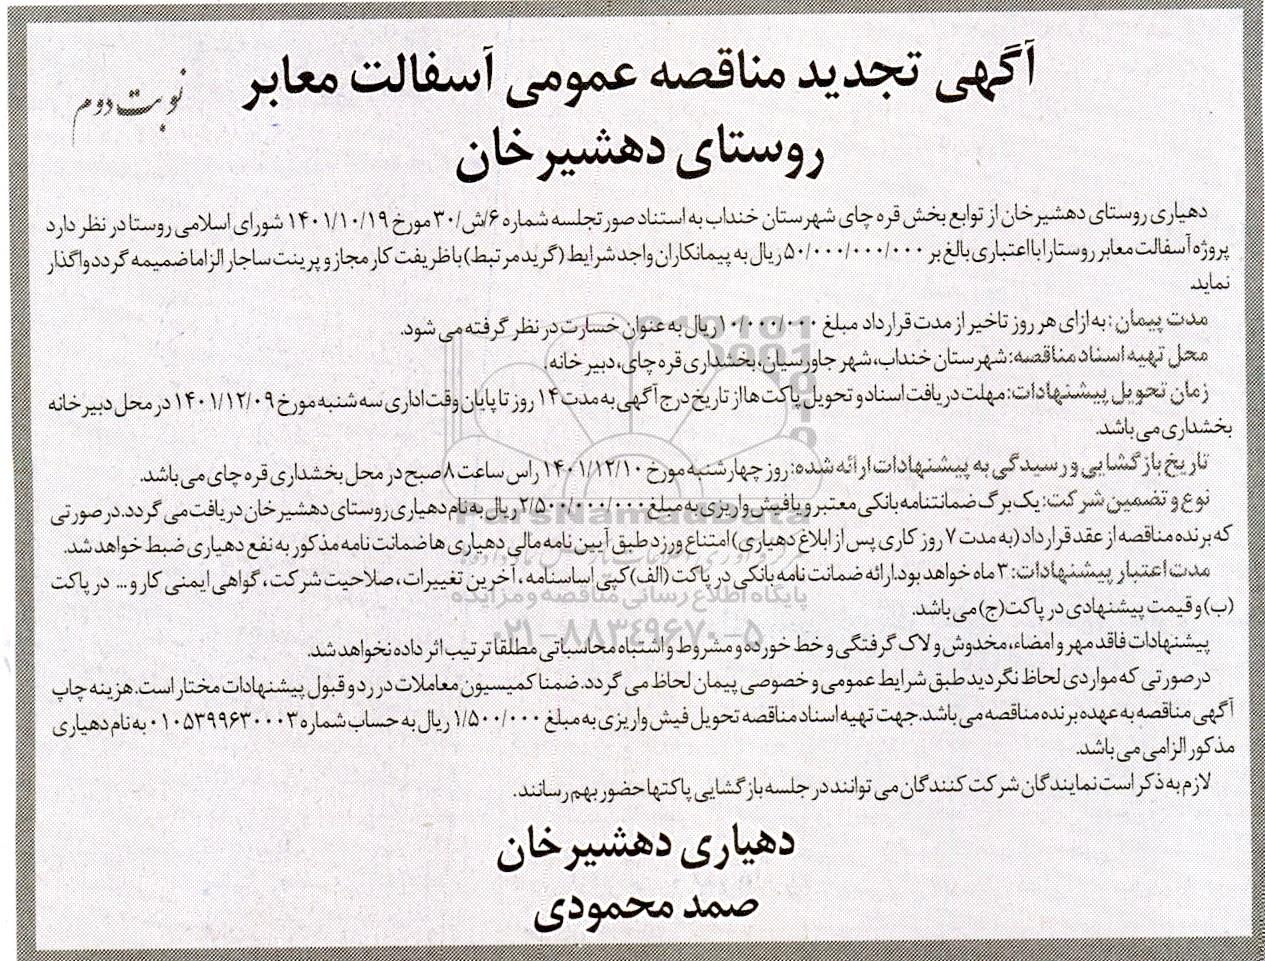 آگهی تجدید مناقصه عمومی آسفالت معابر
نوبت دوم
روستای دهشیرخان
دهیاری روستای دهشیرخان از توابع بخش قره چای شهرستان خنداب به استناد صورتجلسه شماره ۶/ش/۳۰ مورخ ۱۴۰۱/۱۰/۱۹ شورای اسلامی روستا در نظر دارد
پروژه آسفالت معابر روستا را با اعتباری بالغ بر ۵۰/۰۰۰/۰۰۰/۰۰۰ ریال به پیمانکاران واجد شرایط (گرید مرتبط) با ظریفت کار مجاز و پرینت ساجار الزاما ضمیمه گردد واگذار
نماید.
مدت پیمان: به ازای هر روز تاخیر از مدت قرارداد مبلغ ۱۰/۰۰۰/۰۰۰ ریال به عنوان خسارت در نظر گرفته می شود.
محل تهیه اسناد مناقصه: شهرستان خنداب، شهر جاورسیان، بخشداری قره چای، دبیرخانه.
زمان تحویل پیشنهادات: مهلت دریافت اسناد و تحویل پاکت ها از تاریخ درج آگهی به مدت ۱۴ روز تا پایان وقت اداری سه شنبه مورخ ۱۴۰۱/۱۲/۰۹ در محل دبیرخانه
بخشداری می باشد.
تاریخ بازگشایی و رسیدگی به پیشنهادات ارائه شده: روز چهارشنبه مورخ ۱۴۰۱/۱۲/۱۰ راس ساعت ۸ صبح در محل بخشداری قره چای می باشد.
نوع و تضمین شرکت: یک برگ ضمانتنامه بانکی معتبر و یا فیش واریزی به مبلغ ۲/۵۰۰/۰۰۰/۰۰۰ ریال به نام دهیاری روستای دهشیرخان دریافت می گردد. در صورتی
که برنده مناقصه از عقد قرارداد (به مدت ۷ روز کاری پس از ابلاغ دهیاری) امتناع ورزد طبق آیین نامه مالی دهیاری ها ضمانت نامه مذکور به نفع دهیاری ضبط خواهد شد.
مدت اعتبار پیشنهادات: ۳ ماه خواهد بود. ارائه ضمانت نامه بانکی در پاکت (الف) کپی اساسنامه، آخرین تغییرات، صلاحیت شرکت، گواهی ایمنی کار و... در پاکت
(ب) و قیمت پیشنهادی در پاکت (ج) می باشد.
پیشنهادات فاقد مهر و امضاء، مخدوش و لاک گرفتگی و خط خورده و مشروط و اشتباه محاسباتی مطلقا ترتیب اثر داده نخواهد شد.
در صورتی که مواردی لحاظ نگردید طبق شرایط عمومی و خصوصی پیمان لحاظ می گردد. ضمنا کمیسیون معاملات در رد و قبول پیشنهادات مختار است. هزینه چاپ
آگهی مناقصه به عهده برنده مناقصه می باشد. جهت تهیه اسناد مناقصه تحویل فیش واریزی به مبلغ ۱/۵۰۰/۰۰۰ ریال به حساب شماره ۰۱۰۵۳۹۹۶۳۰۰۰۳ به نام دهیاری
مذکور الزامی می باشد.
لازم به ذکر است نمایندگان شرکت کنندگان می توانند در جلسه بازگشایی پاکتها حضور بهم رسانند.
دهیاری دهشیرخان
صمد محمودی
ParsNamadData
پایگاه اطلاع رسانی مناقصه و مزایده
۰۲۱-۸۸۳۴۹۶۷۰-۵